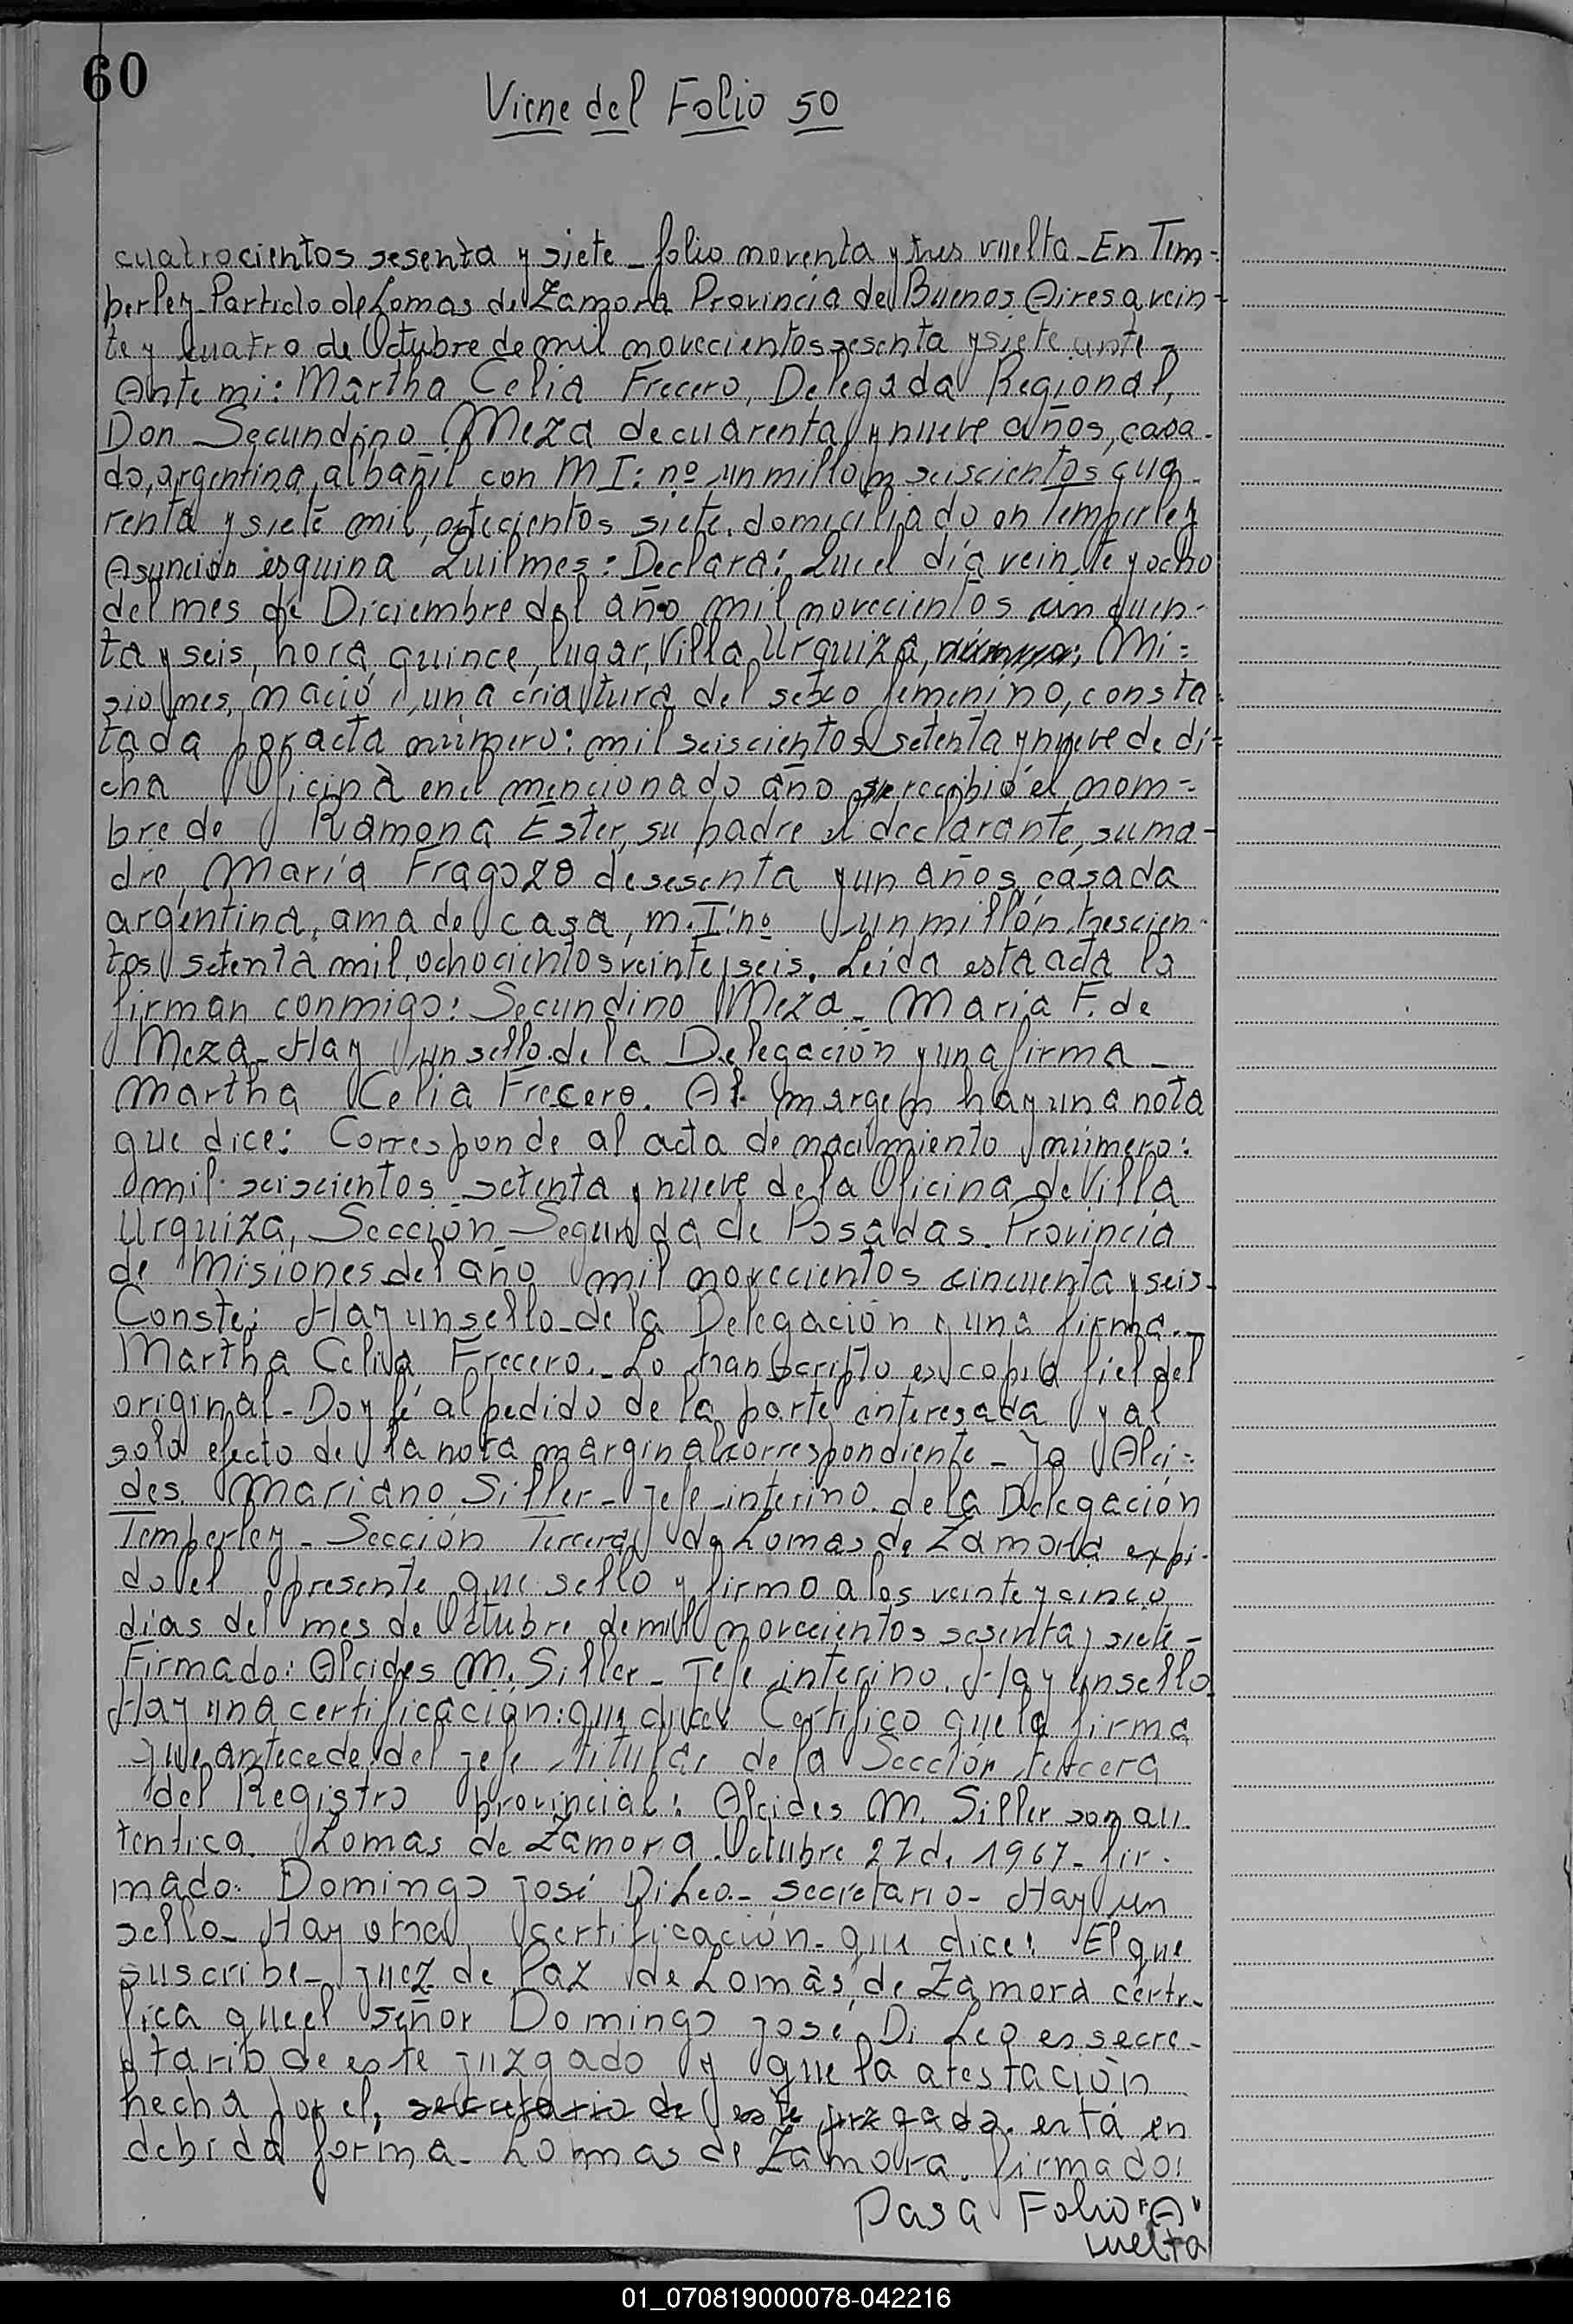 60
Viene del Folio 50
cuatrocientos sesenta y siete - folio noventa y tres vuelta - En Tem-
perley - Partido de Lomas de Zamora Provincia de Buenos Aires a vein-
te y cuatro de Octubre de mil novecientos sesenta y siete ante -
Ante mi: Martha Celia Frecero, Delegada Regional,
Don Secundino Meza de cuarenta y nueve años, casa-
do, argentina, albañil con M I: nº un millon seiscientos cua-
renta y siete mil, siete. domiciliado en Temperley
Asunción esquina Quilmes: Declara: Que el día veinte y ocho
del mes de Diciembre del año mil novecientos cincuen-
ta y seis, hora quince, lugar, Villa Urquiza, Mi=
siones, nació, una criatura del sexo femenino, consta-
tada por acta número: mil seiscientos setenta y nueve de di=
cha Oficina en el mencionado año recibió el nom=
bre de Ramona Ester, su padre el declarante, su ma-
dre, María Fragozo de sesenta y un años, casada
argentina, ama de casa, m. I: nº un millón trescien-
tos setenta mil, ochocientos veinte y seis. Leida esta acta la
firman conmigo: Secundino Meza - Maria F. de
Meza - Hay un sello de la Delegación y una firma -
Martha Celia Frecero. Al margen hay una nota
que dice: Corresponde al acta de nacimiento número:
mil seiscientos setenta y nueve de la Oficina de Villa
Urquiza, Sección Segunda de Posadas. Provincia
de Misiones del año mil novecientos cincuenta y seis -
Conste: Hay un sello de la Delegación y una firma. -
Martha Celia Frecero. - Lo transcripto es copia fiel del
original - Doy fé al pedido de la parte interesada y al
solo efecto de la nota marginal correspondiente - Yo Alci=
des Mariano Siller - Jefe interino de la Delegación
Temperley - Sección Tercera de Lomas de Zamora expi-
do el presente que sello y firmo a los veinte y cinco
dias del mes de Octubre de mil novecientos sesenta y siete -
Firmado: Alcides M. Siller - Jefe interino. Hay un sello -
Hay una certificación: que dice: Certifico que la firma
que antecede del jefe titular de la Sección tercera
del Registro provincial: Alcides M. Siller son au-
tentica. Lomas de Zamora. Octubre 27 de 1967 - fir-
mado: Domingo José Di Leo. - secretario - Hay un
sello - Hay otra certificación - que dice: El que
suscribe - Juez de Paz de Lomas de Zamora certi-
fica que el señor Domingo José Di Leo es secre-
tario de este juzgado y que la atestación
hecha por el, secretario de este juzgado. está en
debida forma - Lomas de Zamora. firmado:
Pasa Folio "A"
vuelta
01_070819000078-042216